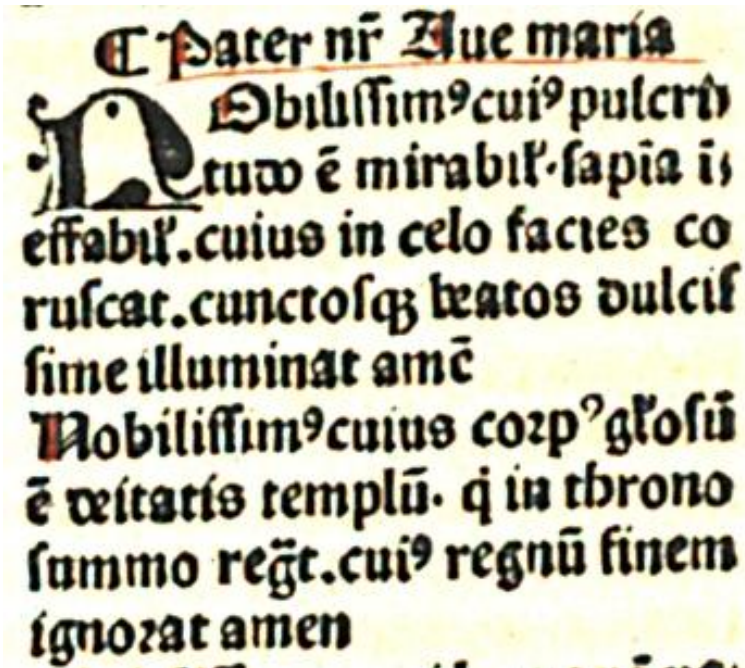 ¶ Pater nr̃ Aue maria
NObiliſſimꝰ cuiꝰ pulcrit
tudo ē mirabilꝭ. ſapīa ī
effabilꝭ. cuius in celo facies co
ruſcat. cunctoſqꝫ beatos dulciſ
ſime illuminat amē
Nobiliſſimꝰ cuius coꝛpꝰ gꝉoſū
ē deitatis templū. q̇ in throno
ſummo reg̃t. cuiꝰ regnū finem
ignoꝛat amen